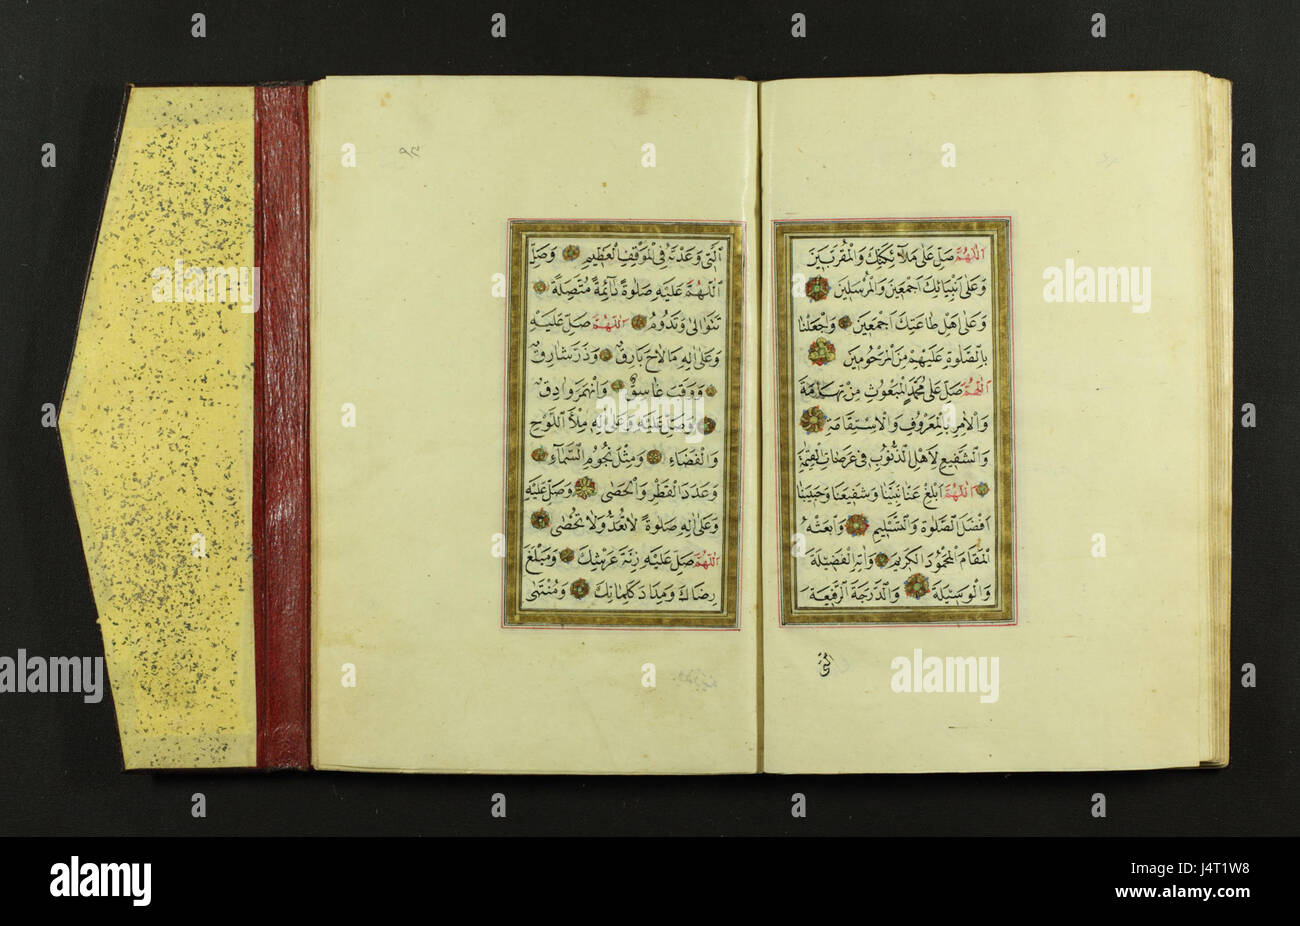 اَللّٰهُمَّ صَلِّ عَلٰى مَلَآئِكَتِكَ وَالْمُقَرَّبٖينَ
وَعَلٰى اَنْبِيَائِكَ اَجْمَعٖينَ وَالْمُرْسَلٖينَ
وَعَلٰى اَهْلِ طَاعَتِكَ اَجْمَعٖينَ وَاجْعَلْنَا
بِالصَّلٰوةِ عَلَيْهِمْ مِنَ الْمَرْحُومٖينَ
اَللّٰهُمَّ صَلِّ عَلٰى مُحَمَّدٍ الْمَبْعُوثِ مِنْ تِهَامَةَ
وَالْاٰمِرِ بِالْمَعْرُوفِ وَالْاِسْتِقَامَةِ
وَالشَّفٖيعِ لِاَهْلِ الذُّنُوبِ فٖى عَرَصَاتِ الْقِيٰمَةِ
اَللّٰهُمَّ اَبْلِغْ عَنَّا نَبِيَّنَا وَشَفٖيعَنَا وَحَبٖيبَنَا
اَفْضَلَ الصَّلٰوةِ وَالتَّسْلٖيمِ وَابْعَثْهُ
الْمَقَامَ الْمَحْمُودَ الْكَرٖيمَ وَاٰتِهِ الْفَضٖيلَةَ
وَالْوَسٖيلَةَ وَالدَّرَجَةَ الرَّفٖيعَةَ
الَّتٖى
الَّتٖى وَعَدْتَهُ فِى الْمَوْقِفِ الْعَظٖيمِ وَصَلِّ
اَللّٰهُمَّ عَلَيْهِ صَلٰوةً دَآئِمَةً مُتَّصِلَةً
تَتَوَالٰى وَتَدُومُ اَللّٰهُمَّ صَلِّ عَلَيْهِ
وَعَلٰى اٰلِهٖ مَا لَاحَ بَارِقٌ وَذَرَّ شَارِقٌ
وَوَقَبَ غَاسِقٌ وَانْهَمَرَ وَادِقٌ
وَصَلِّ عَلَيْهِ وَعَلٰى اٰلِهٖ مِلْأَ اللَّوْحِ
وَالْفَضَاءِ وَمِثْلَ نُجُومِ السَّمَآءِ
وَعَدَدَ الْقَطْرِ وَالْحَصٰى وَصَلِّ عَلَيْهِ
وَعَلٰى اٰلِهٖ صَلٰوةً لَا تُعَدُّ وَلَا تُحْصٰى
اَللّٰهُمَّ صَلِّ عَلَيْهِ زِنَةَ عَرْشِكَ وَمَبْلَغَ
رِضَاكَ وَمِدَادَ كَلِمَاتِكَ وَمُنْتَهٰى
alamy
alamy
alamy
alamy stock photo
J4T1W8
www.alamy.com